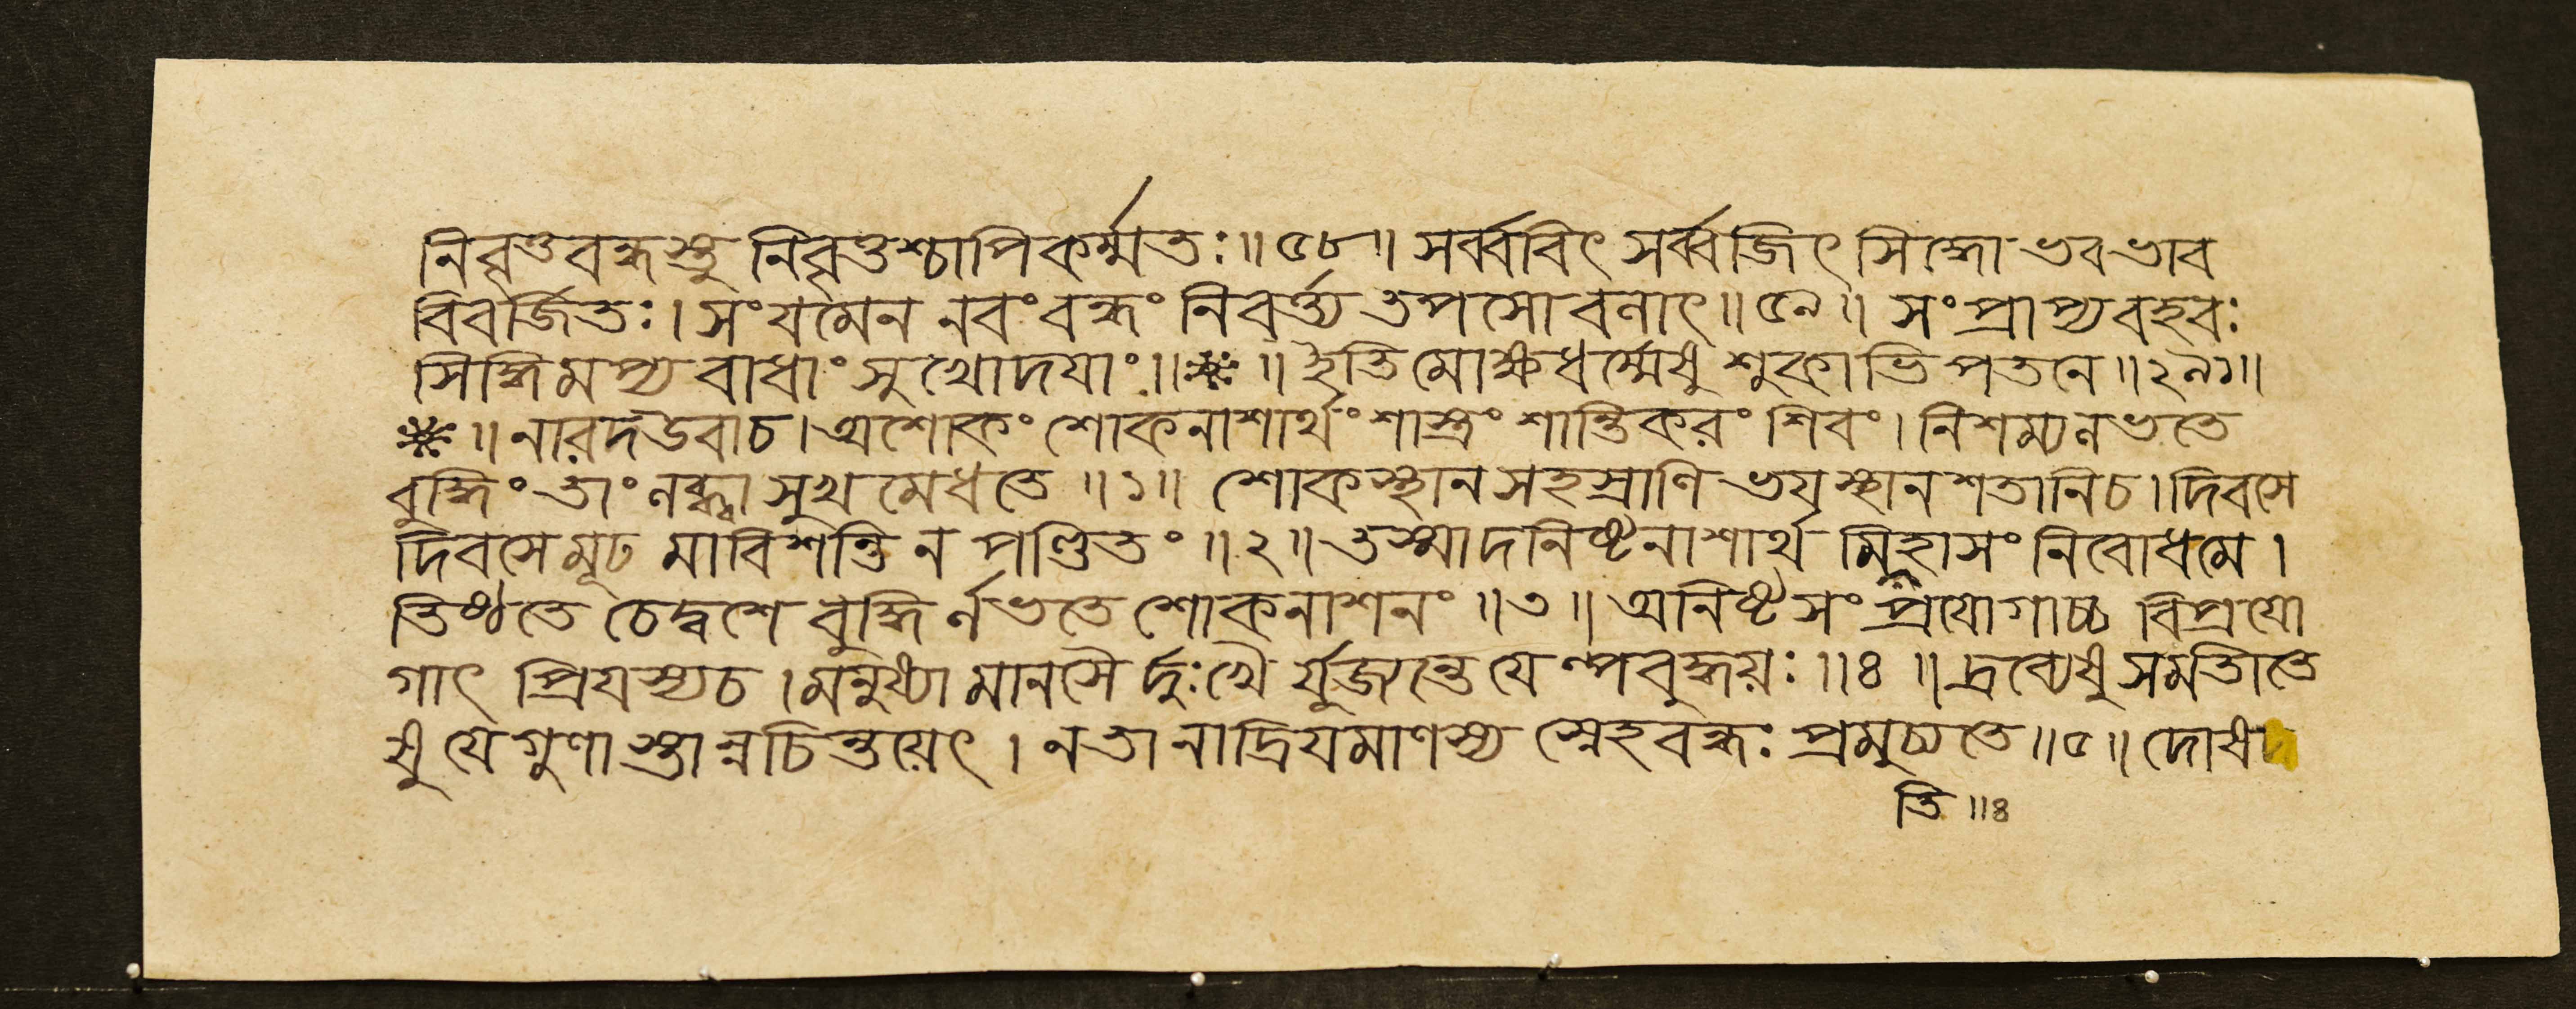 নিবৃত্তবন্ধস্তু নিবৃত্তশ্চাপিকর্ম্মতঃ॥৫৮॥ সর্ব্ববিৎ সর্ব্বজিৎ সিদ্ধো ভবভাব
বিবর্জিতঃ। সংযমেন নবং বন্ধং নিবর্ত্ত্য তপসো বলাৎ॥৫৯॥ সংপ্রাপ্যবহবঃ
সিদ্ধিমপ্য বাধাং সুখোদয়াং॥※॥ ইতি মোক্ষধর্ম্মেষু শুকাভি পতনে॥২৯১॥
※॥ নারদউবাচ। অশোকং শোকনাশার্থং শাস্ত্রং শান্তিকরং শিবং। নিশম্যলভতে
বুদ্ধিং তাং লব্ধ্বা সুখমেধতে॥১॥ শোকস্থানসহস্রাণি ভয়স্থানশতানিচ। দিবসে
দিবসে মূঢ মাবিশন্তি ন পণ্ডিতং॥২॥ তস্মাদনিষ্টনাশার্থ মিহাসং নিবোধমে।
তিষ্ঠতে চেদ্বশে বুদ্ধির্লভতে শোকনাশনং॥৩॥ অনিষ্টসংপ্রযোগাচ্চ বিপ্রযো
গাৎ প্রিয়স্যচ। মনুষ্যা মানসৈ র্দুঃখৈ র্যুজ্যন্তে যেল্পবুদ্ধয়ঃ॥৪॥ দ্রব্যেষু সমতীতে
ষু যে গুণা স্তান্নচিন্তয়েৎ। নতানাদ্রিয়মাণস্য স্নেহবন্ধঃ প্রমুচ্যতে॥৫॥ দোষদ
তি॥৪